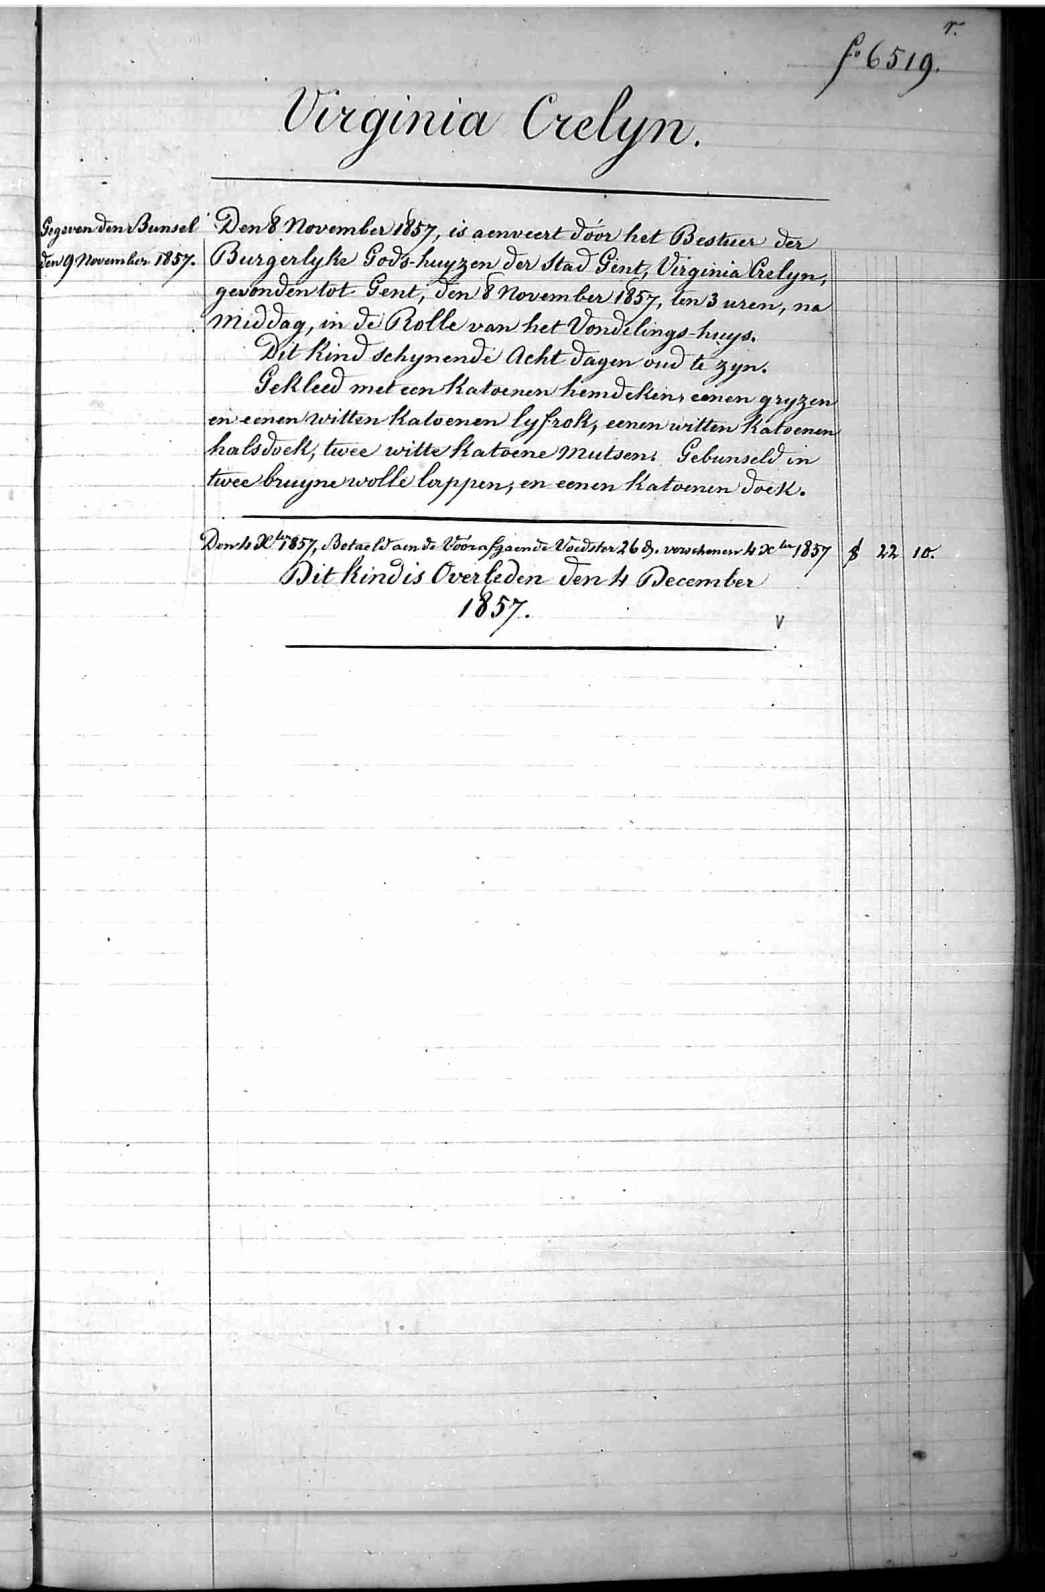 r.
fo 6519.
Virginia Crelyn.
Gegeven den Bunsel
den 9 November 1857.
Den 8 November 1857, is aenveert dóór het Bestuer der
Burgerlyke Gods-huyzen der Stad Gent, Virginia Crelyn,
gevonden tot Gent, den 8 November 1857, ten 3 uren, na
middag, in de Rolle van het Vondelings-huys.
Dit kind schynende Acht dagen oud te zyn.
Gekleed met een katoenen hemdeken, eenen gryzen
en eenen witten katoenen lyfrok, eenen witten katoenen
halsdoek, twee witte katoene mutsen. Gebunseld in
twee bruyne wolle lappen, en eenen katoenen doek.
Den 4 Xber 1857, Betaeld aen de Vóórafgaende Voedster 26 d. verschenen 4 Xber 1857 f 22 10.
Dit kind is Overleden den 4 December
1857.
V